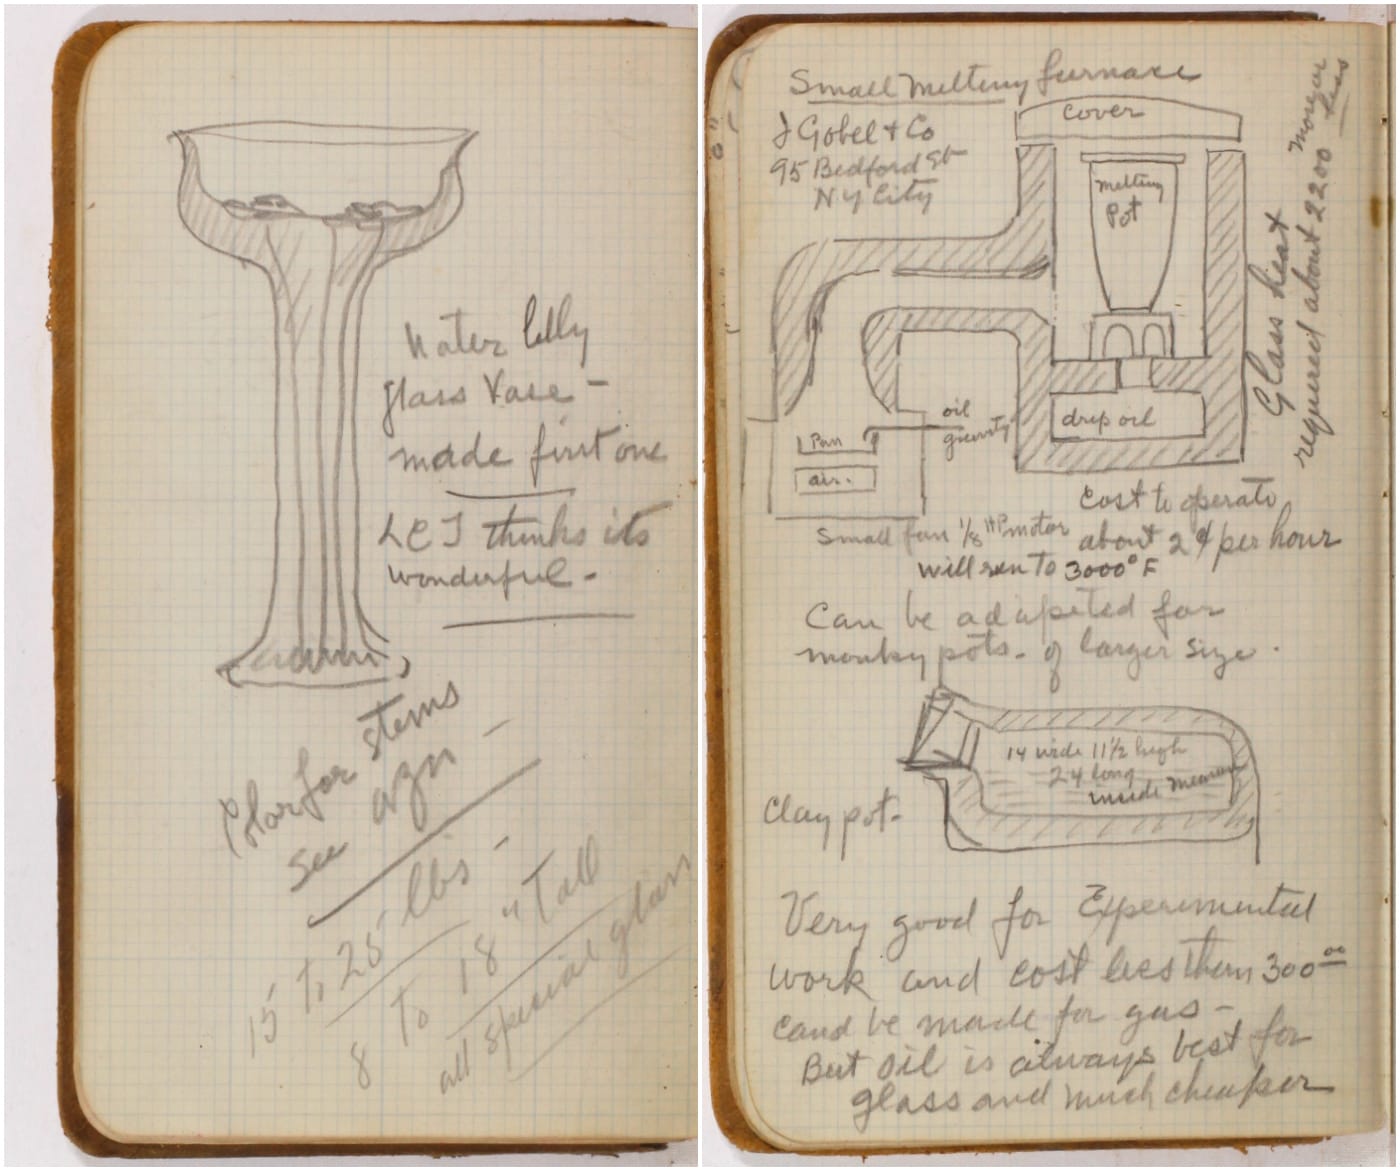 Water lilly
glass Vase -
made first one
LCT thinks its
wonderful -
Color for stems
see azn -
15 To 25 lbs -
8 To 18 " Tall
all special glass
Small melting furnace
J Gobel & Co
95 Bedford St
N Y City
cover
melting
Pot
Glass heat
required about 2200 more or
less
oil
gravity
drip oil
Pan
air.
Small fan 1/8 HP motor
will run to 3000° F
Cost to operate
about 2¢ per hour
Can be adapeted for
monkey pots - of larger size.
14 wide 11 1/2 high
24 long
inside measure
Clay pot -
Very good for Experimental
work and cost less than 300 00
cand be made for gas -
But oil is always best for
glass and much cheaper